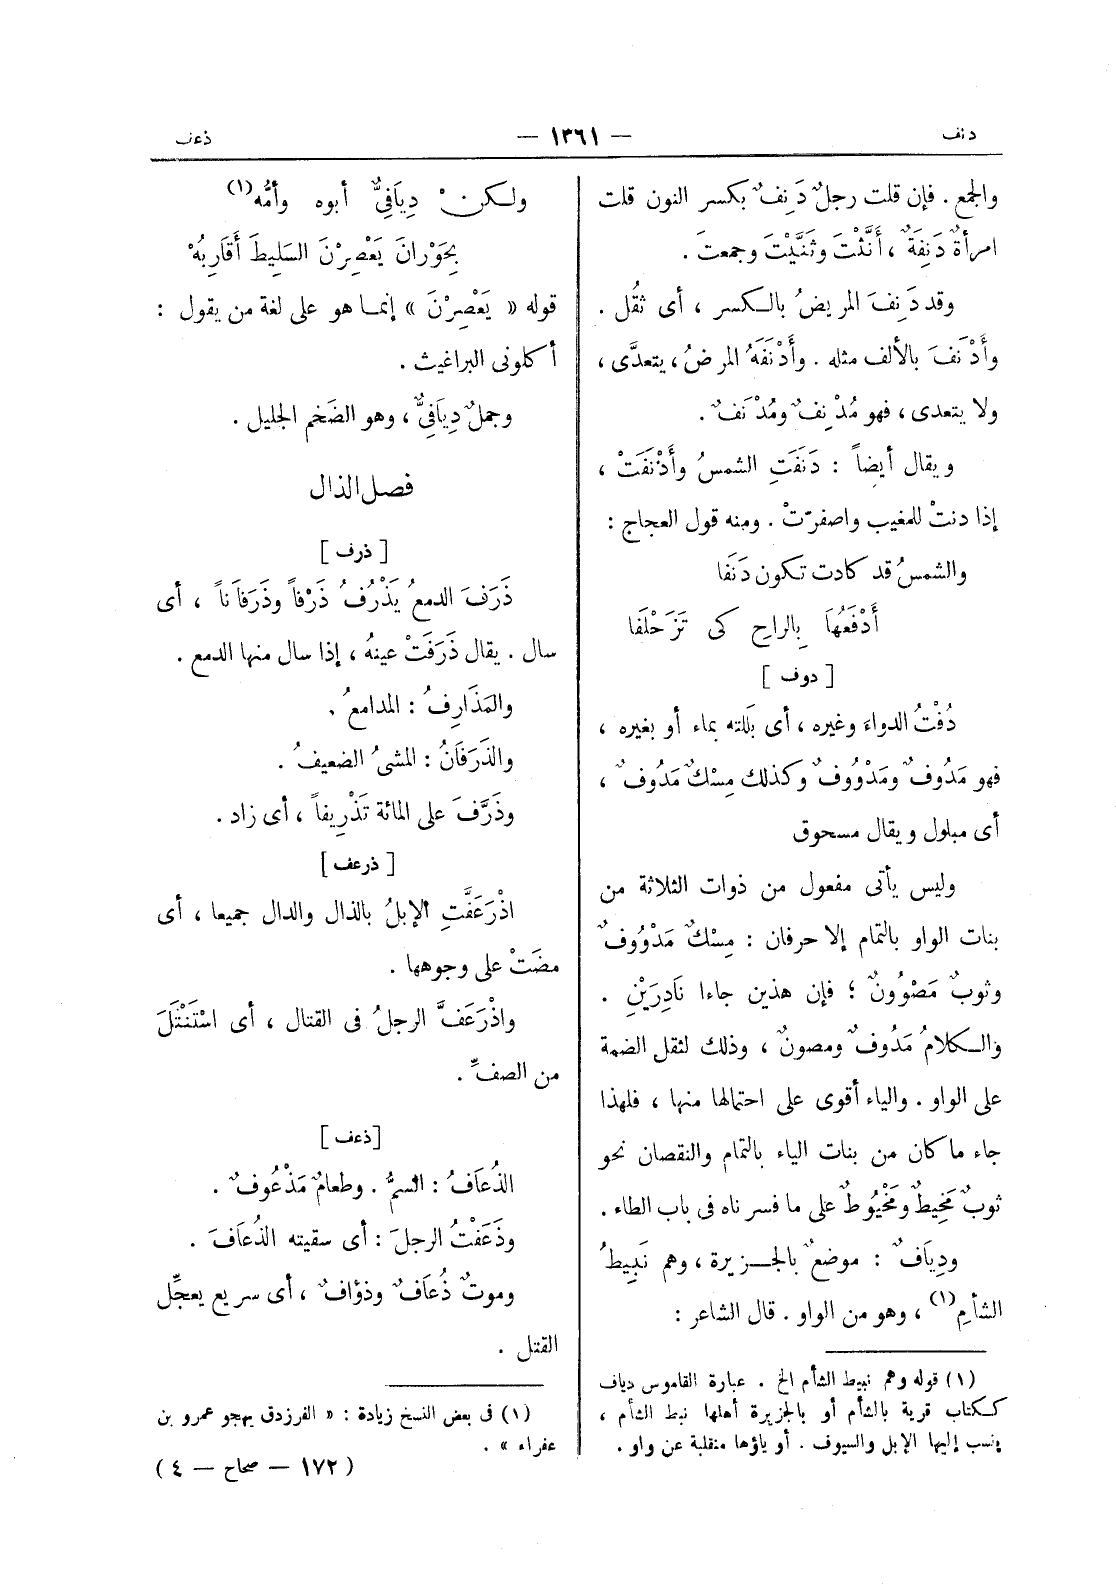 دنف
— ١٣٦١ —
ذعف
والجمع . فإن قلت رجلٌ دَنِفٌ بكسر النون قلت
امرأةٌ دَنِفَةٌ ، أنَّثْتَ وثنَّيْتَ وجمعتَ .
وقد دَنِفَ المريضُ بالكسر ، أى ثقُل .
وأَدْنَفَ بالألف مثله . وأَدْنَفَهُ المرضُ ، يتعدَّى ،
ولا يتعدى ، فهو مُدْنِفٌ ومُدْنَفٌ .
ويقال أيضاً : دَنَفَتِ الشمسُ وأَدْنَفَتْ ،
إذا دنتْ للمغيب واصفرّتْ . ومنه قول العجاج :
والشمسُ قد كادت تكون دَنَفَا
أَدْفَعُهَا بِالراحِ كى تَزَحْلَفَا
[ دوف ]
دُفْتُ الدواءَ وغيره ، أى بَللته بماء أو بغيره ،
فهو مَدُوفٌ ومَدْوُوفٌ وكذلك مِسْكٌ مَدُوفٌ ،
أى مبلول ويقال مسحوق
وليس يأتى مفعول من ذوات الثلاثة من
بنات الواو بالتمام إلا حرفان : مِسْكٌ مَدْوُوفٌ
وثوبٌ مَصْوُونٌ ؛ فإن هذين جاءا نَادِرَيْنِ .
والكلامُ مَدُوفٌ ومصونٌ ، وذلك لثقل الضمة
على الواو . والياء أقوى على احتمالها منها ، فلهذا
جاء ما كان من بنات الياء بالتمام والنقصان نحو
ثوبٌ مَخِيطٌ ومَخْيُوطٌ على ما فسرناه فى باب الطاء .
ودِيَافٌ : موضعٌ بالجزيرة ، وهم نَبِيطُ
الشأمِ (١) ، وهو من الواو . قال الشاعر :
(١) قوله وهم نبيط الشأم الخ . عبارة القاموس دياف
ككتاب قرية بالشأم أو بالجزيرة أهلها نبط الشأم ،
ينسب إليها الإبل والسيوف . أو ياؤها منقلبة عن واو .
ولكنْ دِيَافِيٌّ أبوه وأمُّه (١)
بِحَوْرَانَ يَعْصِرْنَ السَلِيطَ أَقَارِبُهْ
قوله « يَعْصِرْنَ » إنما هو على لغة من يقول :
أكلونى البراغيث .
وجملٌ دِيَافِيٌّ ، وهو الضَخم الجليل .
فصل الذال
[ ذرف ]
ذَرَفَ الدمعُ يَذْرُفُ ذَرْفاً وذَرَفَاناً ، أى
سال . يقال ذَرَفَتْ عينهُ ، إذا سال منها الدمع .
والمَذَارِفُ : المدامعُ .
والذَرَفَانُ : المشىُ الضعيفُ .
وذَرَّفَ على المائة تَذْرِيفاً ، أى زاد .
[ ذرعف ]
اذْرَعَفَّتِ الإبلُ بالذال والدال جميعا ، أى
مضَتْ على وجوهها .
واذْرَعَفَّ الرجلُ فى القتال ، أى اسْتَنْتَلَ
من الصفِّ .
[ ذعف ]
الذُعَافُ : السمُّ . وطعامٌ مَذْعُوفٌ .
وذَعَفْتُ الرجلَ : أى سقيته الذُعَافَ .
وموتٌ ذُعَافٌ وذؤافٌ ، أى سريع يعجِّل
القتل .
(١) فى بعض النسخ زيادة : « الفرزدق يهجو عمرو بن
عفراء » .
( ١٧٢ — صحاح — ٤ )